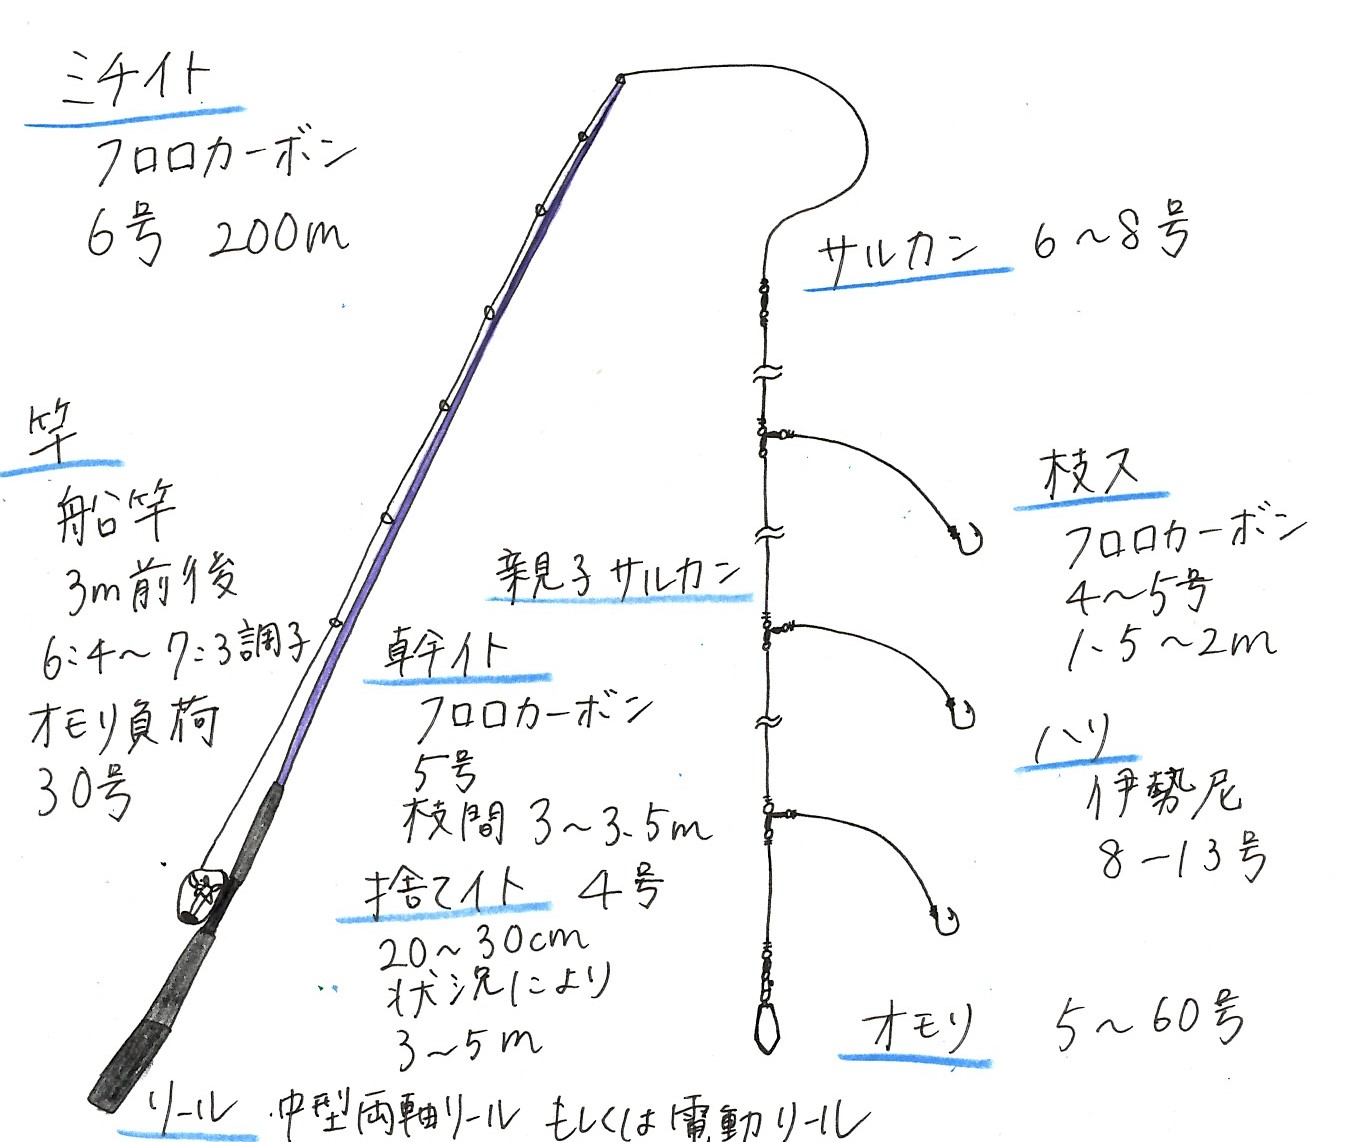 ミチイト
フロロカーボン
6号 200m
サルカン 6～8号
竿
船竿
3m前後
6:4～7:3調子
オモリ負荷
30号
親子サルカン
幹イト
フロロカーボン
5号
枝間 3～3.5m
捨てイト 4号
20～30cm
状況により
3～5m
枝ス
フロロカーボン
4～5号
1.5～2m
ハリ
伊勢尼
8－13号
オモリ 5～60号
リール 中型両軸リール もしくは電動リール